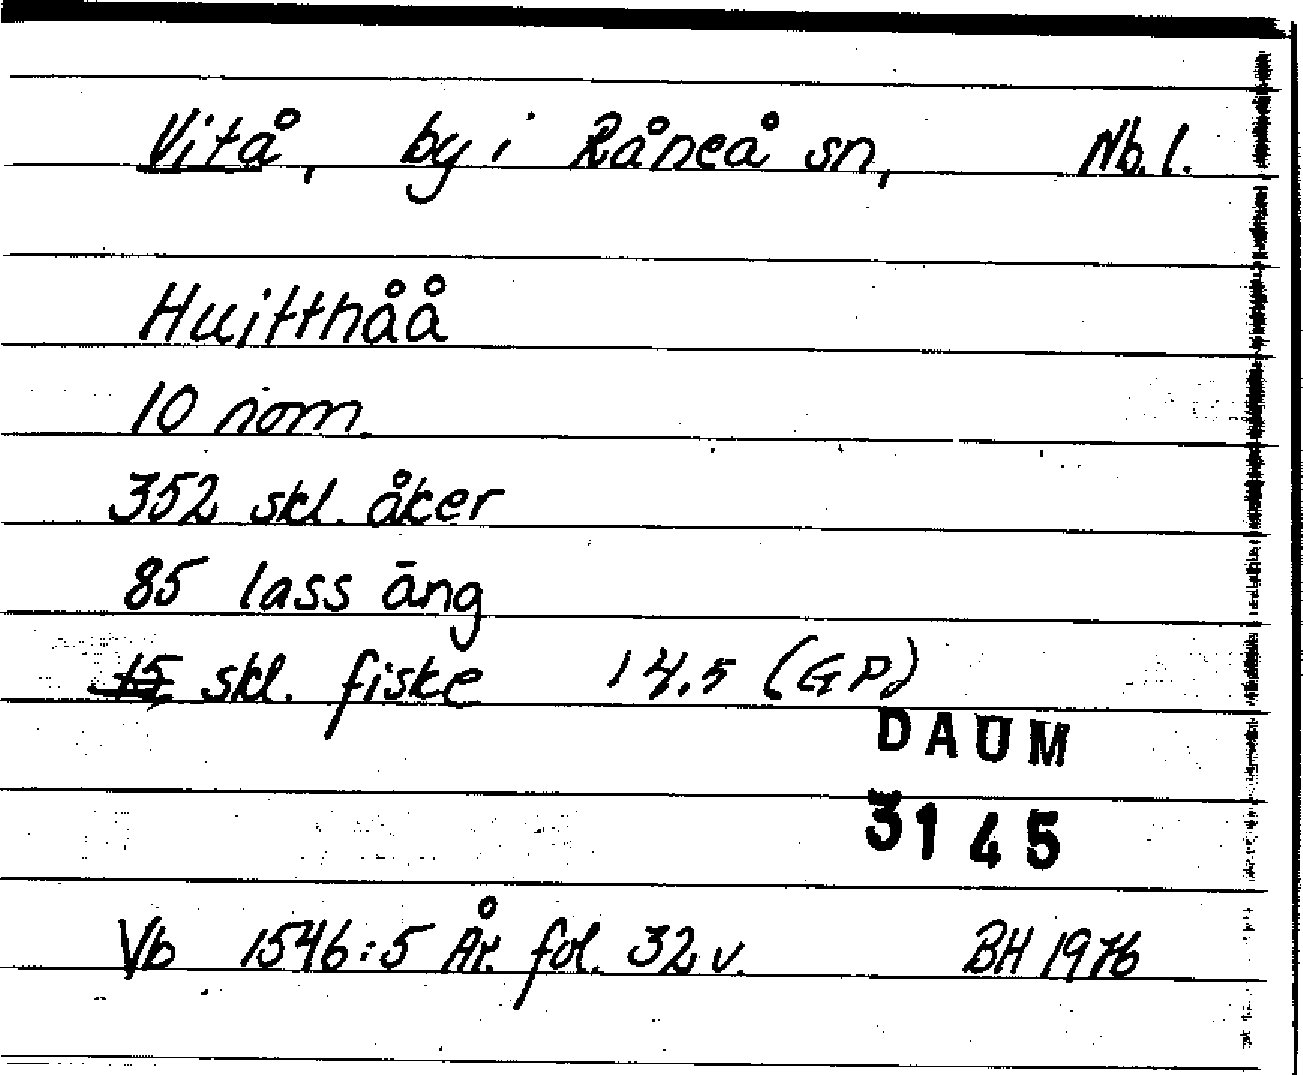 Vitå, by i Råneå sn, Nb. l.
Huitthåå
10 nom.
352 skl. åker
85 lass äng
15 skl. fiske 14.5 (GP)
DAUM
3145
Vb 1546:5 År. fol. 32 v. BH 1976